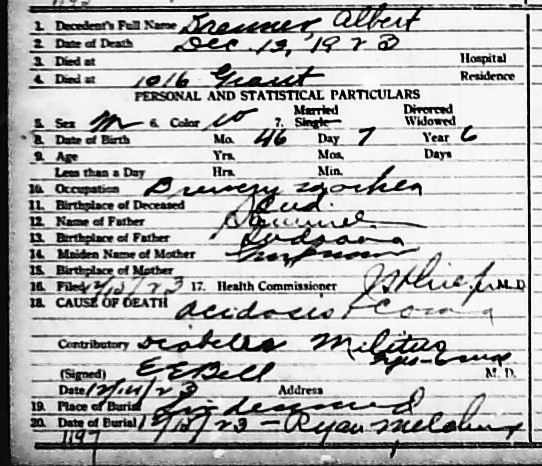 1. Decedent's Full Name Brenner, Albert
2. Date of Death Dec. 12, 1923
3. Died at Hospital
4. Died at 1016 Grant Residence
PERSONAL AND STATISTICAL PARTICULARS
5. Sex M 6. Color W 7. Married Single Divorced Widowed
8. Date of Birth Mo. 46 Day 7 Year 6
9. Age Yrs. Mos. Days
Less than a Day Hrs. Min.
10. Occupation Brewery worker
11. Birthplace of Deceased Ind.
12. Name of Father Samuel
13. Birthplace of Father Indiana
14. Maiden Name of Mother Unknown
15. Birthplace of Mother
16. Filed 12/15/23 17. Health Commissioner M. D.
18. CAUSE OF DEATH acidosis + Coma
Contributory Diabetes Melitus
(Signed) E E Bell M. D.
Date 12/14/23 Address
19. Place of Burial Lindenwood
20. Date of Burial 12/15/23 - Ryan
1197